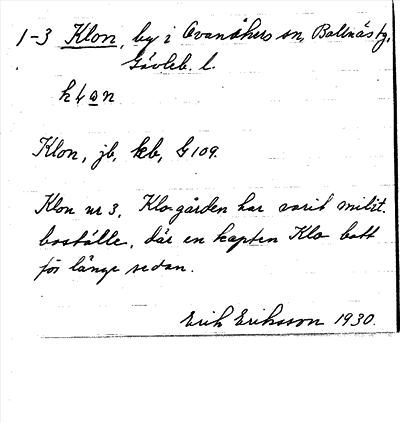 1-3 Klon, by i Ovanåkers sn, Bollnäs fg,
Gävleb. l.
Klon, jb, kb, G109.
Klon nr 3, Klogården har varit milit.
boställe, där en kapten Klo bott
för länge sedan.
Erik Eriksson 1930.